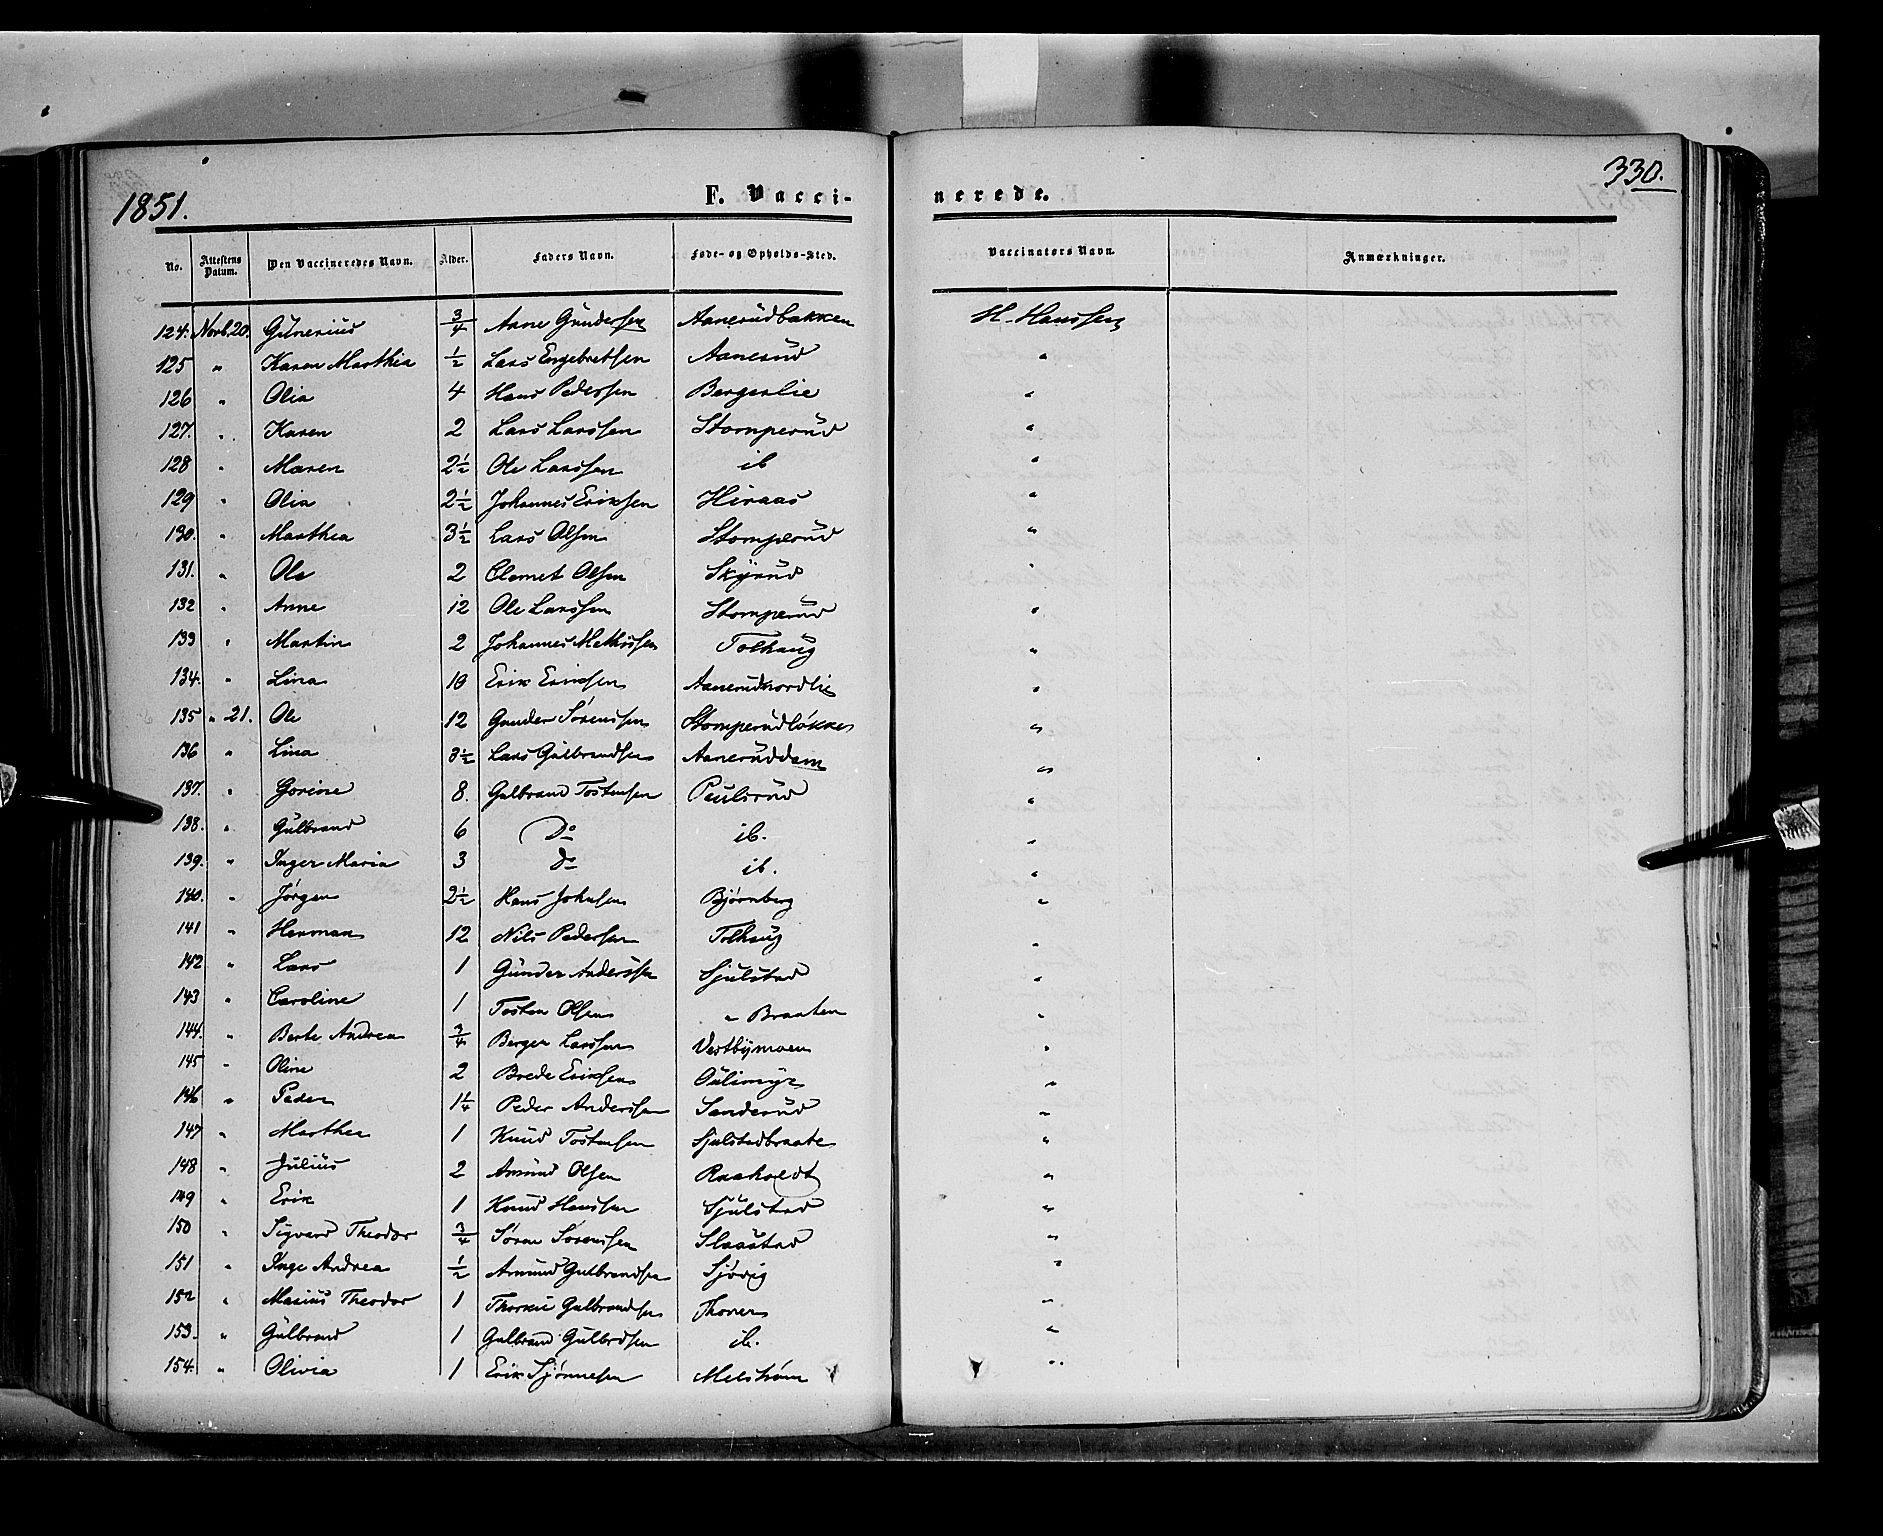 1851. F. Vacci- nerede. 330.
No. Attestens Datum. Den Vaccineredes Navn. Alder. Faders Navn. Føde- og Opholds-Sted. Vaccinators Navn. Anmærkninger.
124. Novb. 20. Gunerius 3/4 Arne Gundersen Aanerudbakken H. Hanssen
125 " Karen Marthia 1/2 Lars Engebretsen Aanerud "
126 " Olia 4 Hans Pederssen Bergerlie "
127. " Karen 2 Lars Larssen Stomperud "
128 " Maren 2 1/2 Ole Larssen ib "
129 " Olia 2 1/2 Johannes Eriksen Hiraas "
130. " Marthea 3 1/2 Lars Olsen Stomperud "
131. " Ole 2 Clemet Olsen Skyrud "
132 " Anne 12 Ole Larssen Stomperud "
133 " Martin 2 Johannes Mathissen Tolhaug "
134. " Lina 10 Erik Eriksen Aanerudnordlie "
135 " 21. Ole 12 Gunder Sørenssen Stomperudløkke "
136 " Lina 3 1/2 Lars Gulbrandsen Aaneruddam "
137. " Gorine 8. Gulbrand Tostensen Paulsrud "
138. " Gulbrand 6 Do ib. "
139. " Inger Maria 3 do ib. "
140. " Jørgen 2 1/2 Hans Johnsen Bjørnberg "
141 " Herman 12 Nils Pedersen Tolhaug "
142 " Lars 1 Gunder Anderssen Sjulstad "
143 " Caroline 1 Tosten Olsen " Braaten "
144. " Berte Andrea 3/4 Berger Larssen Vestbymoen "
145 " Oline 2 Brede Eriksen Oulimyr "
146 " Peder 1 1/4 Peder Anderssen Sanderud "
147 " Marthea 1 Knud Tostensen Sjulstadbraate "
148 " Julius 2 Amund Olsen Raaholdt "
149 " Erik 1 Knud Hanssen Sjulstad "
150 " Sigvard Theodor 3/4 Søren Sørenssen Slaastad "
151 " Inge Andrea 1/2 Amund Gulbrandsen Sjøvig "
152 " Marius Theodor 1 Thorkil Gulbrandsen Thoner "
153. " Gulbrand 1 Gulbrand Gulbrdsen ib. "
154. " Olivia 1 Erik Sjønnesen Melstrøm "